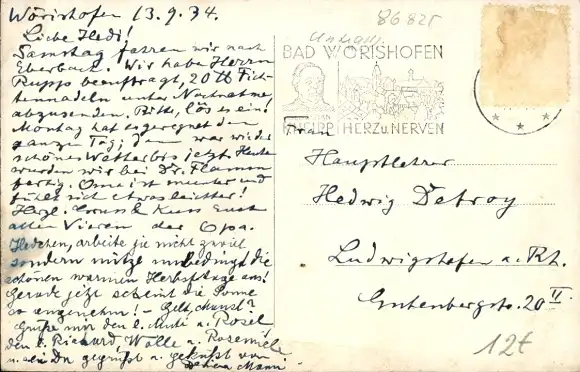 Wörishofen 13.9.34.
Liebe Hedi!
Samstag fahren wir nach
Eberbach. Wir haben Herrn
Rupps beauftragt, 20 ℔ Fich-
tennadeln unter Nachnahme
abzusenden. Bitte, lös es ein!
Montag hat es geregnet den
ganzen Tag; dann war wieder
schönes Wetter bis jetzt. Heute
wurden wir bei Dr. Flamm
fertig. Oma ist munter und
fühlt sich etwas leichter!
Herzl. Gruss & Kuss Euch
allen Vieren der Opa.
Hedchen, arbeite ja nicht zuviel
sondern nütze unbedingt die
schönen warmen Herbsttage aus!
Gerade jetzt scheint die Sonne
so angenehm! – Gelt,
Grüße mir den l. Mutti u. Rosel
den l. Richard, Wolle u. Rosemie
u. sei Du gegrüßt u. geküßt von
Mann
86825
BAD WÖRISHOFEN
KNEIPP HERZ u. NERVEN
Frau
Hauptlehrer
Hedwig Detroy
Ludwigshafen a. Rh.
Gutenbergstr. 20 II.
12€